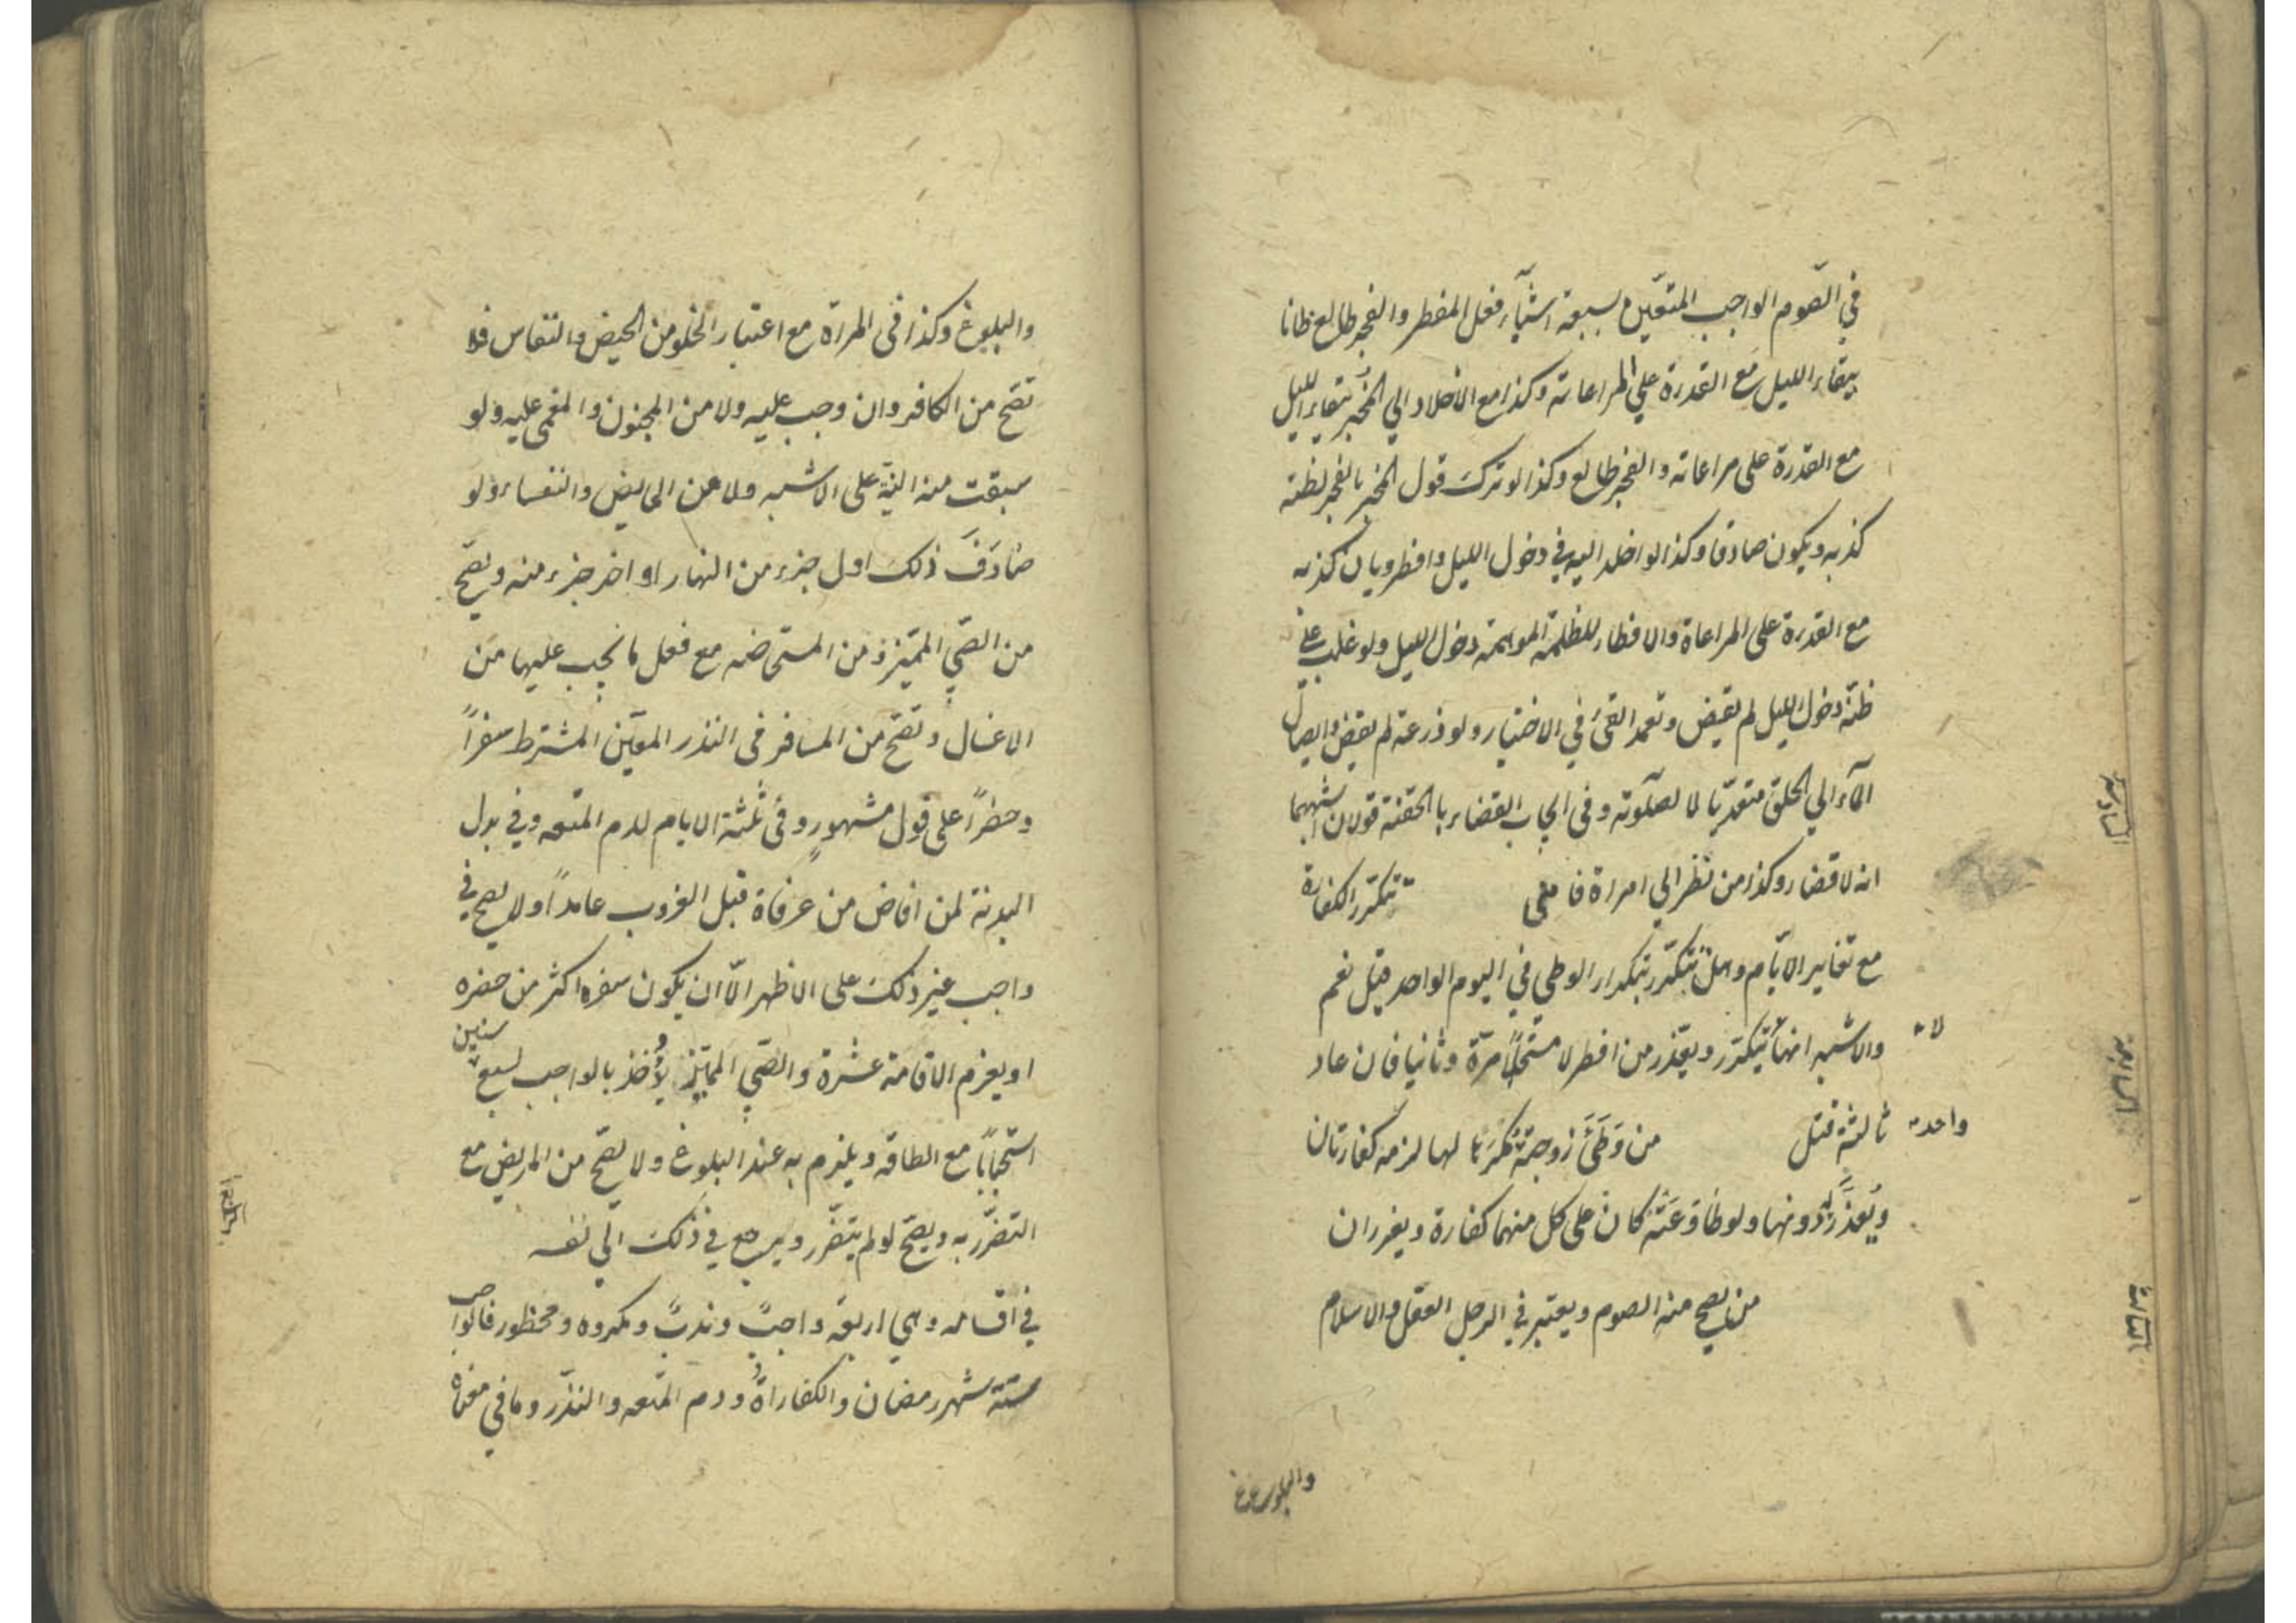 في الصّوم الواجب المتعّين بسبعة اشيآء فعل المفطر والفجر طالع ظانا
ببقاء الليل مع القدرة علي المراعاته وكذا مع الاخلاد الي المخبر ببقاء الليل
مع القدرة على مراعاته والفجر طالع وكذا لو ترك قول المخبر بالفجر لظنه
كذبه ويكون صادقا وكذا لو اخلد اليه في دخول الليل وافطر وبان كذبه
مع القدرة على المراعاة والافطار للظلمة الموهمة دخول الليل ولو غلب على
ظنه دخول الليل لم يقض وتعمد القئ في الاختيار ولو ذرعه لم يقض وايصال
المآء الي الحلق متعدّيا لا لصلٓوته وفى ايجاب القضاء با الحقنة قولان اشبههما
انه لا قضاء وكذا من نظر الي امراة فامنى تتكرّر الكفارة
مع تغاير الايّام وهل تتكرّر بتكرار الوطي في اليوم الواحد قيل نعم
والاشبه انها تتكرّر ويعّذر من افطر لا مستحلاً مرّة وثانيا فان عاد
لا
ثالثة قتل من وَطَئَ زوجته مُكرَها لها لزمه كفارتان
واحدة
ويُعذَّر دونها ولو طاوعَتْه كان على كل منهما كفارة ويعزران
من يصح منه الصوم ويعتبر في الرجل العقل والاسلام
والبلوغ
السادسة
السابعة
الثالث
والبلوغ وكذا فى المراة مع اعتبار الخلو من الحيض والنفاس فلا
تصّح من الكافر وان وجب عليه ولا من المجنون والمغمى عليه ولو
سبقت منه النيّة على الاشبه ولا من الحايض والنفساء ولو
صَادَفَ ذلك اول جزء من النهار او اخر جزء منه ويصّح
من الصّبي المميّز ومن المستحاضه مع فعل ما يجب عليها من
الاغسال وتصّح من المسافر فى النذر المعيّن المشترط سفراً
وحضراً على قول مشهورٍ وفى ثلثة الايام لدم المتعه وفي بدل
البدنة لمن افاض من عرفاة قبل الغروب عامداً ولا يصح في
واجب غير ذلك على الاظهر الّا ان يكون سفره اكثر من حضره
او يعزم الاقامة عشرة والصّبي المميّز يُؤخذ بالواجب لسبع سنين
استحبّاباً مع الطاقه ويلزم به عند البلوغ ولا يصّح من المريض مع
التضرّر به ويصّح لو لم يتضّرر ويرجع في ذلك الي نفسه
في اقسامه وهي اربعة واجبٌ وندبٌ ومكروه ومحظور فالواجب
ستة شهر رمضان والكفاراةُ ودم المتعه والنذر وما في معناه
الرابع